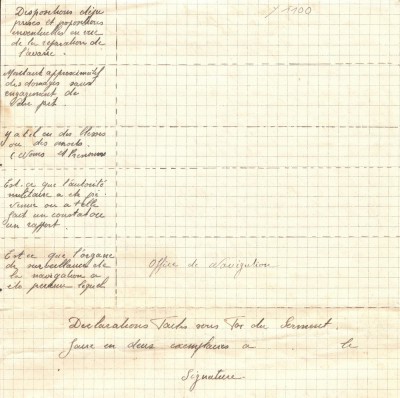 Dispositions déja
prises et propositions
éventuelles en vue
de la réparation de
l'avarie.
y 1100
Montant approximatif
des domages sans
engagement de
Votre part
Y a t il eu des blessés
ou des morts.
( Noms et Prénoms
Est-ce que l'autorité
militaire a été pré
venue ou a t elle
fait un constat ou
un rapport.
Est ce que l'organe
de surveillance de
la navigation a
été prévenu lequel
Office de Navigation
Déclarations Faites sous Foi du Serment.
faire en deux exemplaires a le
Signature